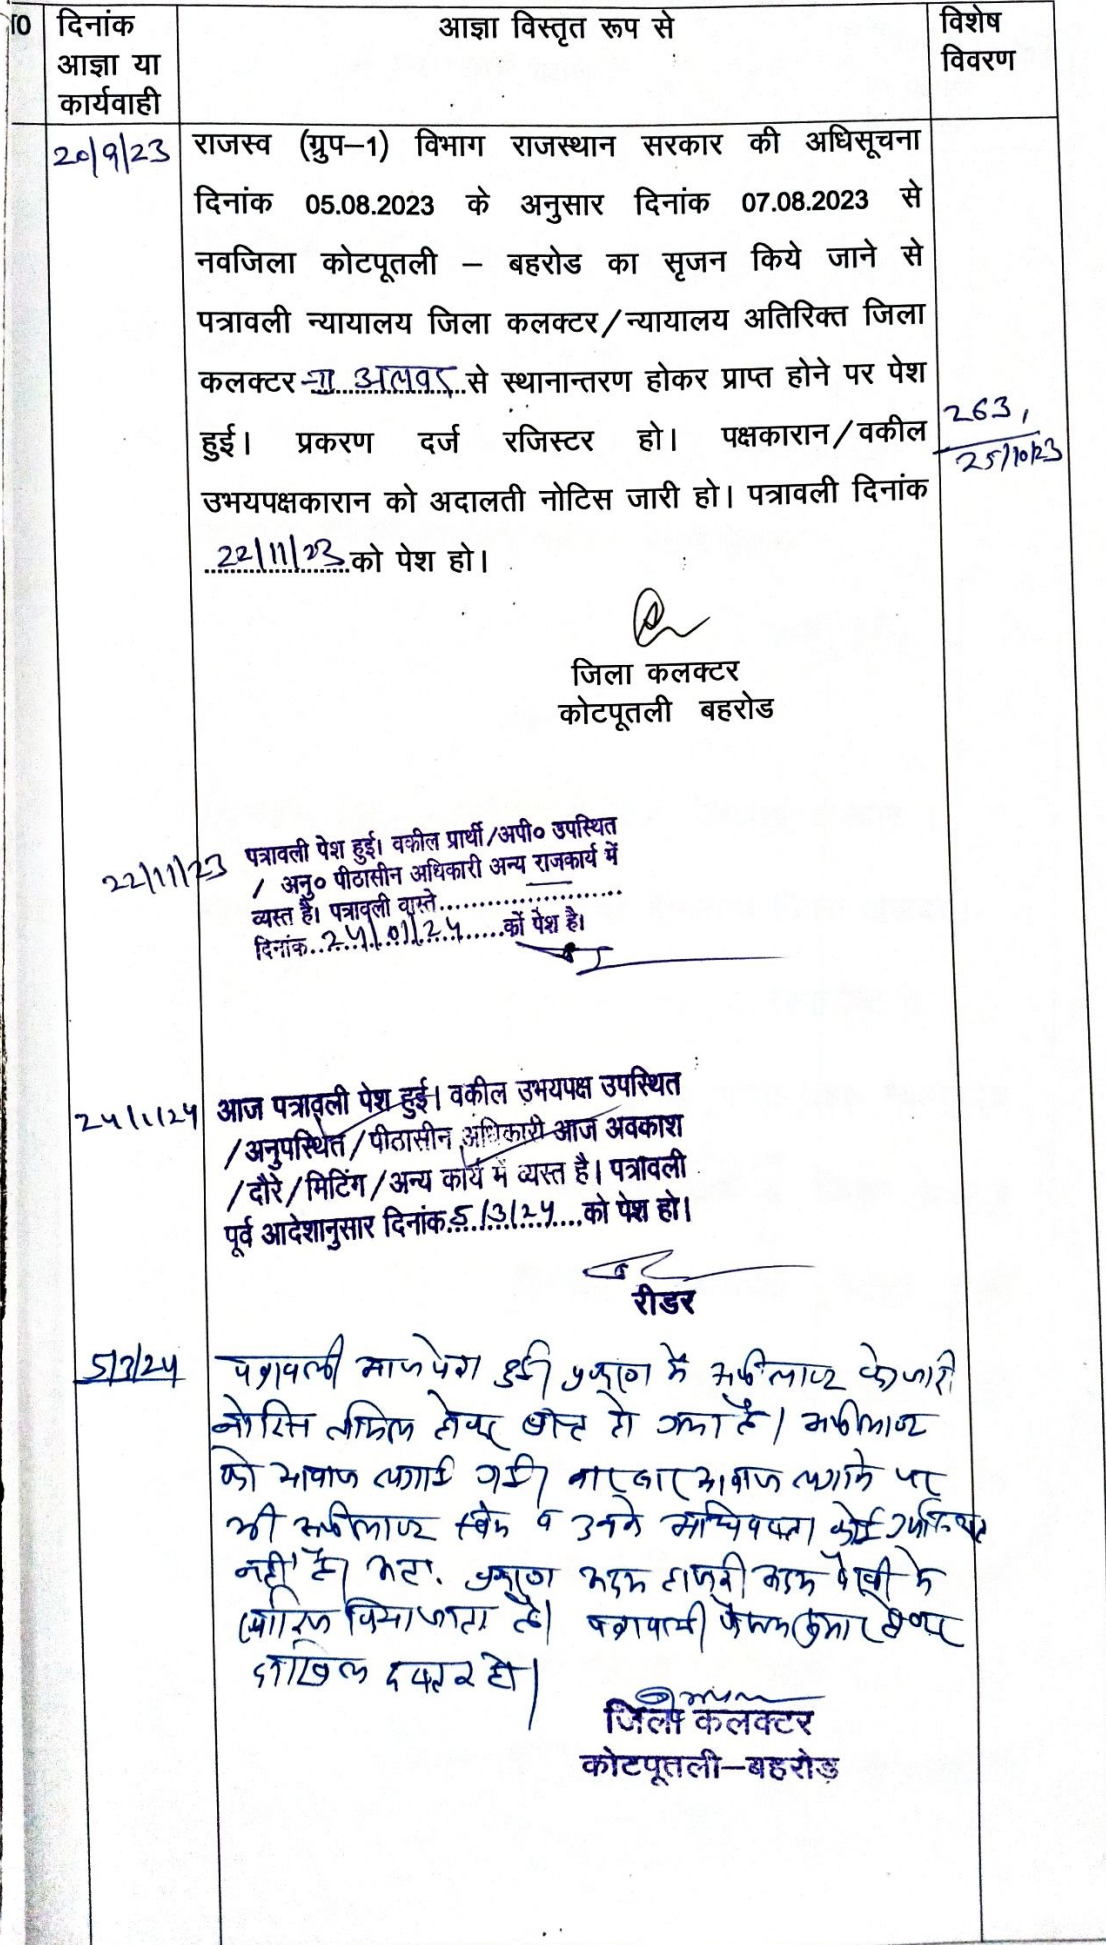 दिनांक
आज्ञा या
कार्यवाही
आज्ञा विस्तृत रूप से
विशेष
विवरण
20/9/23
राजस्व (ग्रुप–1) विभाग राजस्थान सरकार की अधिसूचना
दिनांक 05.08.2023 के अनुसार दिनांक 07.08.2023 से
नवजिला कोटपूतली – बहरोड का सृजन किये जाने से
पत्रावली न्यायालय जिला कलक्टर/न्यायालय अतिरिक्त जिला
कलक्टर अलवर से स्थानान्तरण होकर प्राप्त होने पर पेश
हुई। प्रकरण दर्ज रजिस्टर हो। पक्षकारान/वकील
उभयपक्षकारान को अदालती नोटिस जारी हो। पत्रावली दिनांक
22/11/23 को पेश हो।
263
25/10/23
जिला कलक्टर
कोटपूतली बहरोड
22/11/23
पत्रावली पेश हुई। वकील प्रार्थी/अपी० उपस्थित
/ अनु० पीठासीन अधिकारी अन्य राजकार्य में
व्यस्त है। पत्रावली वास्ते......................
दिनांक..24/01/24......कों पेश है।
24/1/24
आज पत्रावली पेश हुई। वकील उभयपक्ष उपस्थित
/अनुपस्थित/पीठासीन अधिकारी आज अवकाश
/दौरे/मिटिंग/अन्य कार्य में व्यस्त है। पत्रावली
पूर्व आदेशानुसार दिनांक.5/3/24....को पेश हो।
रीडर
5/3/24
पत्रावली आज पेश हुई। प्रकरण में अपीलान्ट को जारी
नोटिस तामिल होकर प्राप्त हो गया है। अपीलान्ट
को आवाज लगाई गई। बार बार आवाज लगाने पर
भी अपीलान्ट स्वयं व उनके अधिवक्ता कोई उपस्थित
नहीं है। अतः प्रकरण अदम हाजरी अदम पैरवी में
खारिज किया जाता है। पत्रावली फैसल शुमार होकर
दाखिल दफ्तर हो।
जिला कलक्टर
कोटपूतली–बहरोड़